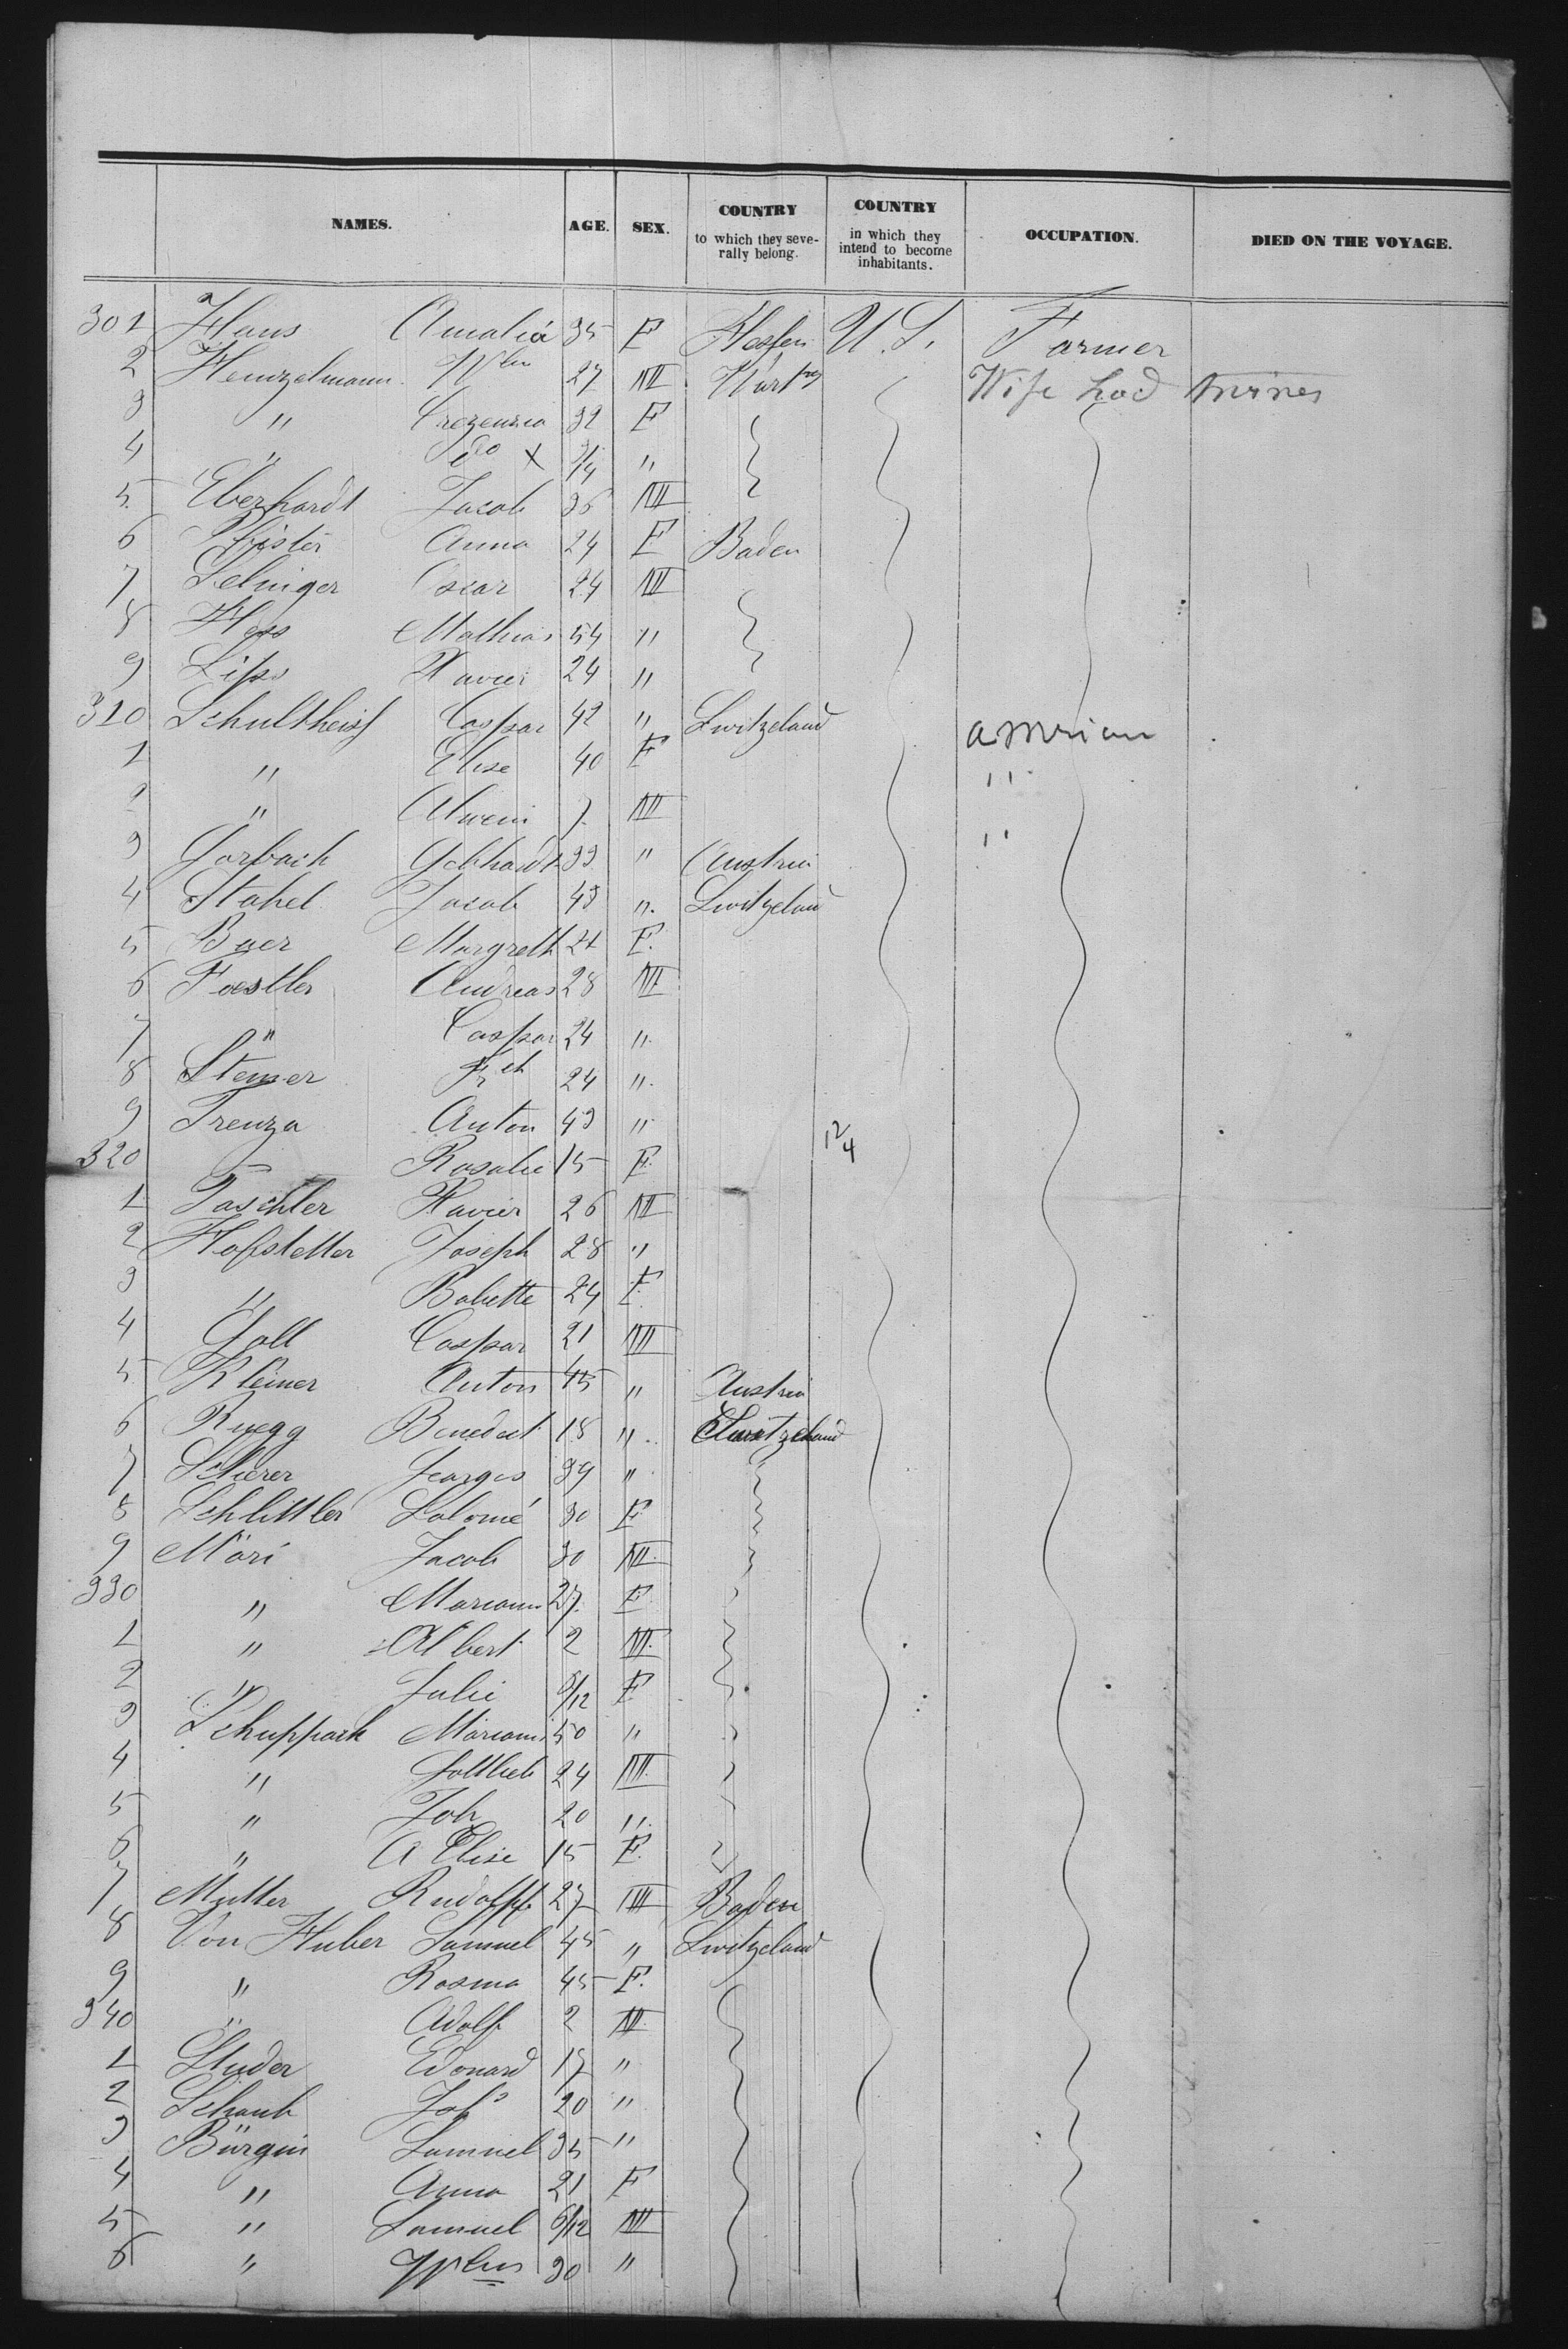 NAMES. AGE. SEX. COUNTRY to which they severally belong. COUNTRY in which they intend to become inhabitants. OCCUPATION. DIED ON THE VOYAGE.
301 Haus Amalia 35 F Hessen U.S. Farmer
2 Heinzelmann Wlm 27 M Wurtbg Wife had twines
3 " Crezensia 32 F
4 " do X "
5 Eberhardt Jacob 36 M
6 Pfister Anna 24 F Baden
7 Selinger Oscar 24 M
8 Hess Mathias 54 "
9 Lips Xavier 24 "
310 Schultheiss Caspar 42 " Switzeland American
1 " Elise 40 F "
2 " Alwein 7 M
3 Gorbach Gebhardt 33 " Austria "
4 Stahel Jacob 43 " Switzeland
5 Baer Margreth 21 F.
6 Faestler Andreas 28 M
7 " Caspar 24 "
8 24 "
9 Trenza Anton 43 " 12/4
320 Rosalie 15 F.
1 Taschler Xavier 26 M
2 Hofstetter Joseph 28 "
3 " Babette 24 F.
4 Goll Caspar 21 M
5 Kleiner Anton 45 " Austria
6 Ruegg Benedict 18 " Switzeland
7 Scherer Georges 39 "
8 Schlittler Salomé 30 F.
9 Möri Jacob 30 M.
330 " Mariann 27. F.
1 " Albert 2 M.
2 " Julie /12 F
3 Schuppach Mariann 50 "
4 " Gottlieb 24 M.
5 " Joh 20 "
6 " A Elise 15 F.
7 Mutter Rudolph 27 M Baden
8 Von Huber Samuel 45 " Switzeland
9 " Rosina 45 F.
340 " Adolf 2 M.
1 Studer Edouard 17 "
2 Schaub Johs 20 "
3 Bürgin Samuel 35 "
4 " Anna 21 F
5 " Samuel 6/12 M
6 " Wlm 30 "